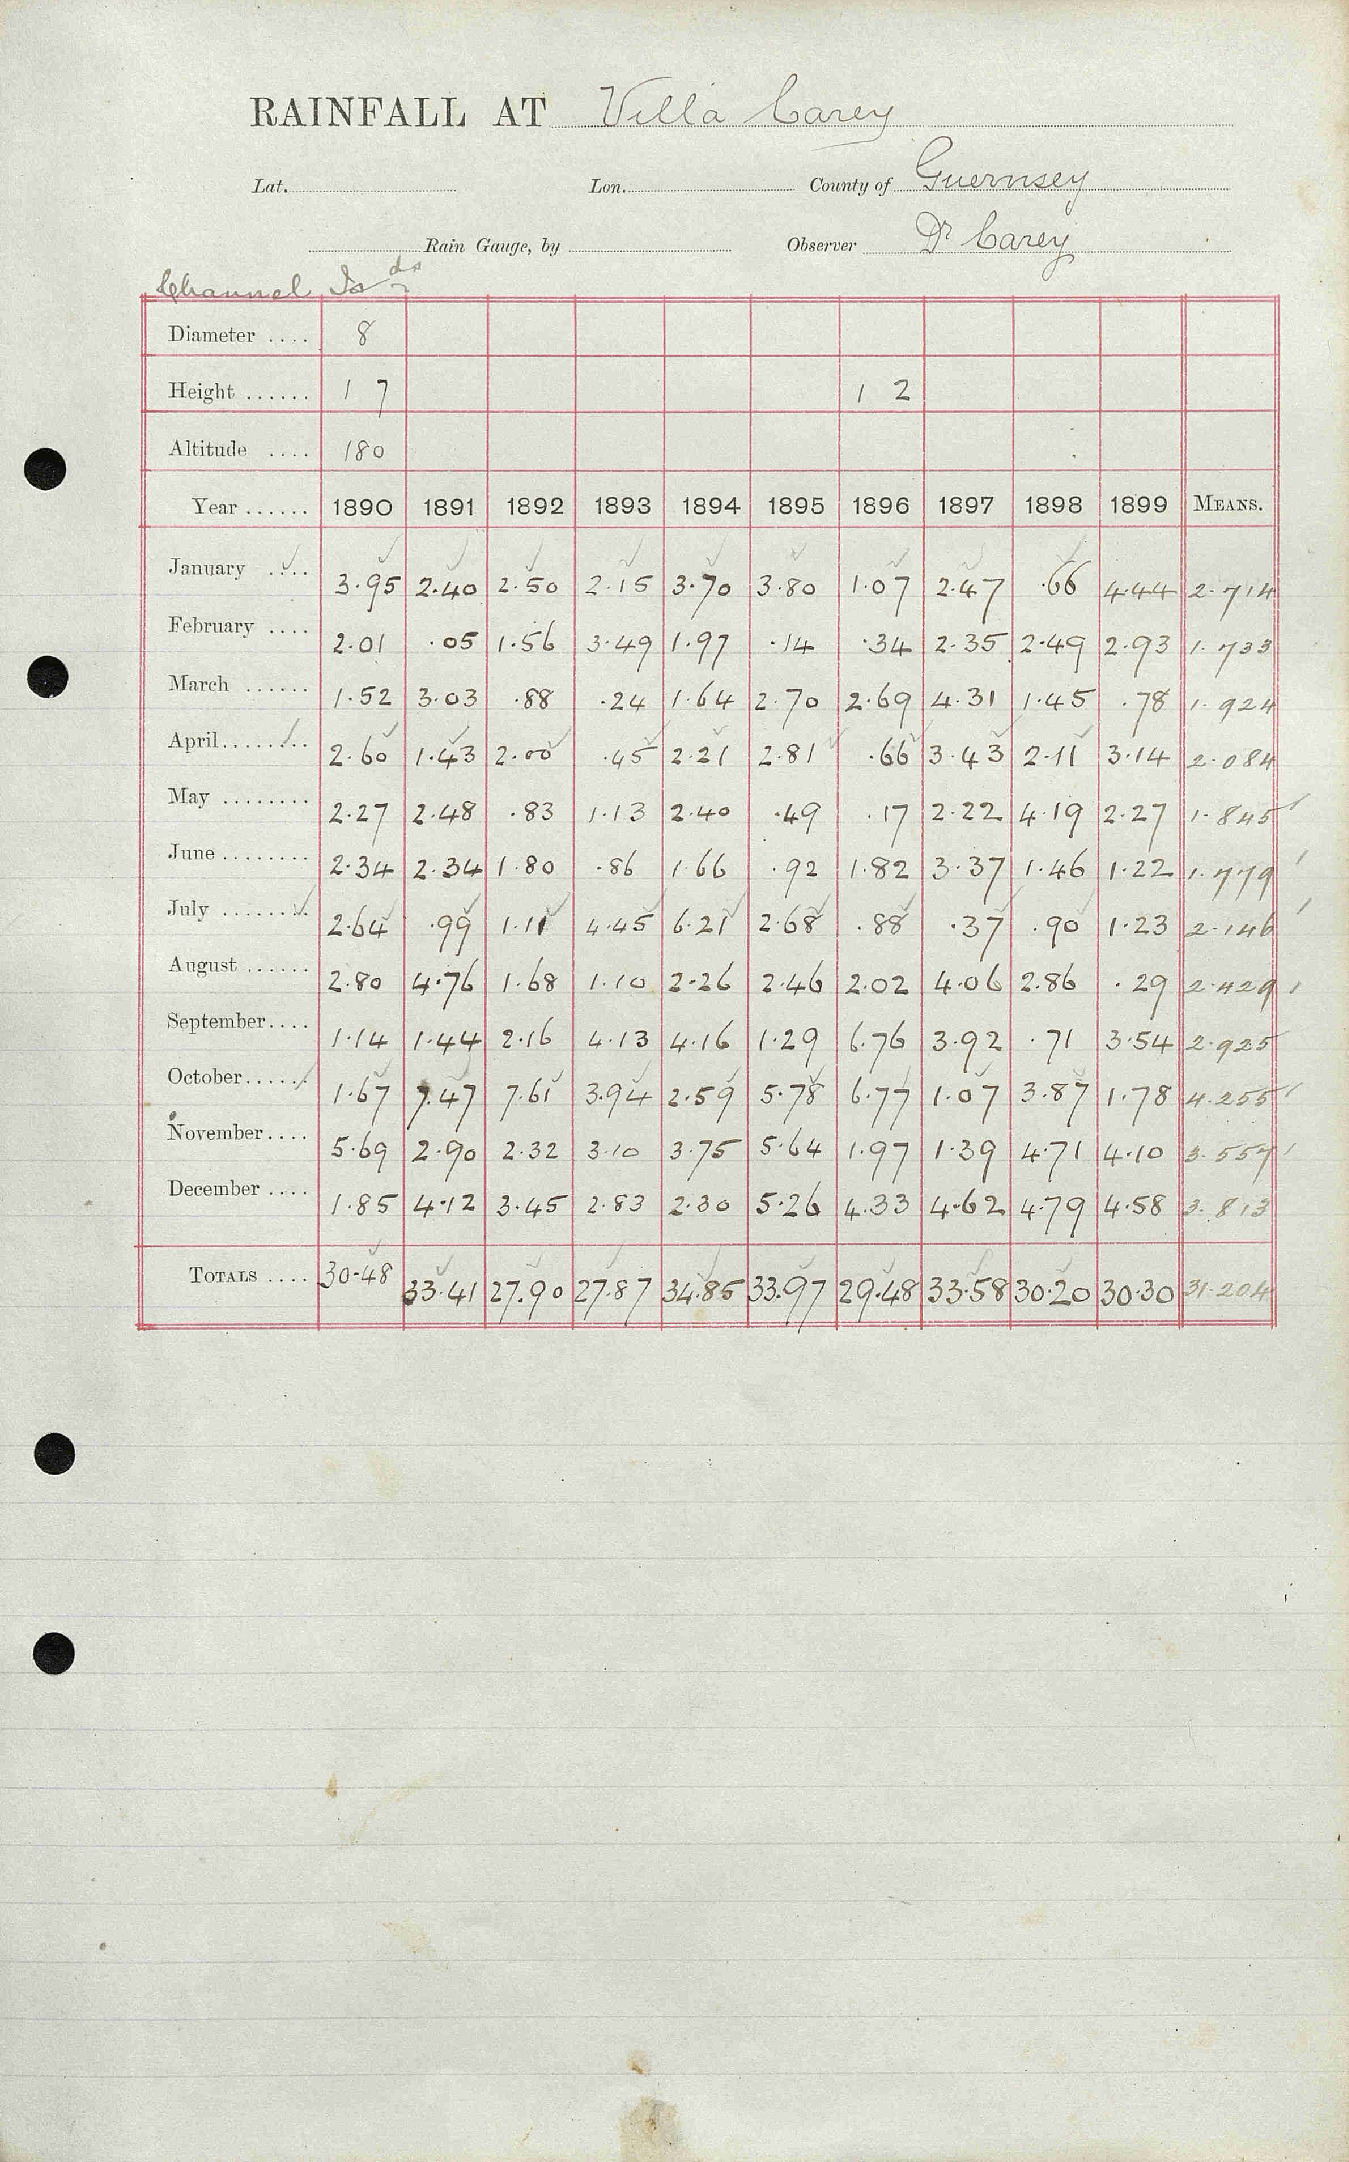 RAINFALL AT Villa Carey
Lat. Lon. County of Guernsey
Rain Gauge, by Observer Dr Carey
Channel Is ds
Diameter .... 8
Height ...... 1 7 1 2
Altitude .... 180
Year ...... 1890 1891 1892 1893 1894 1895 1896 1897 1898 1899 MEANS.
January .... 3.95 2.40 2.50 2.15 3.70 3.80 1.07 2.47 .66 4.44 2.714
February .... 2.01 .05 1.56 3.49 1.97 .14 .34 2.35 2.49 2.93 1.733
March ...... 1.52 3.03 .88 .24 1.64 2.70 2.69 4.31 1.45 .78 1.924
April........ 2.60 1.43 2.00 .45 2.21 2.81 .66 3.43 2.11 3.14 2.084
May ........ 2.27 2.48 .83 1.13 2.40 .49 .17 2.22 4.19 2.27 1.845
June ........ 2.34 2.34 1.80 .86 1.66 .92 1.82 3.37 1.46 1.22 1.779
July ........ 2.64 .99 1.11 4.45 6.21 2.68 .88 .37 .90 1.23 2.146
August ...... 2.80 4.76 1.68 1.10 2.26 2.46 2.02 4.06 2.86 .29 2.429
September.... 1.14 1.44 2.16 4.13 4.16 1.29 6.76 3.92 .71 3.54 2.925
October...... 1.67 7.47 7.61 3.94 2.59 5.78 6.77 1.07 3.87 1.78 4.255
November.... 5.69 2.90 2.32 3.10 3.75 5.64 1.97 1.39 4.71 4.10 3.557
December .... 1.85 4.12 3.45 2.83 2.30 5.26 4.33 4.62 4.79 4.58 3.813
TOTALS .... 30.48 33.41 27.90 27.87 34.85 33.97 29.48 33.58 30.20 30.30 31.204